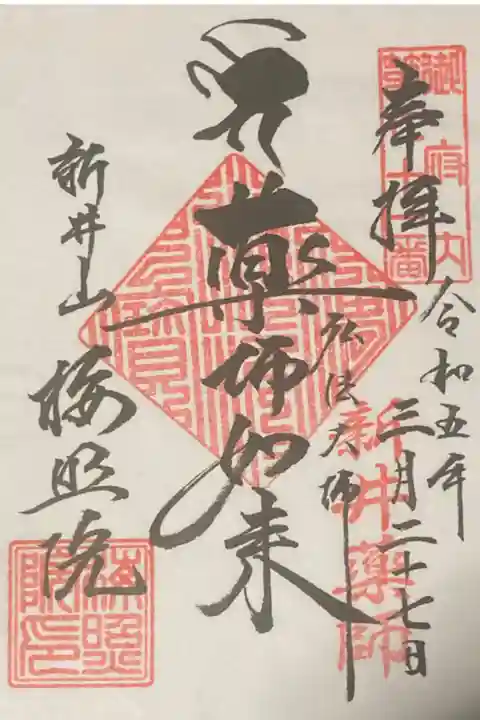 奉拝
令和五年
三月二十七日
新井薬師
薬師如来
弘法大師
新井山
梅照院
梅照院印